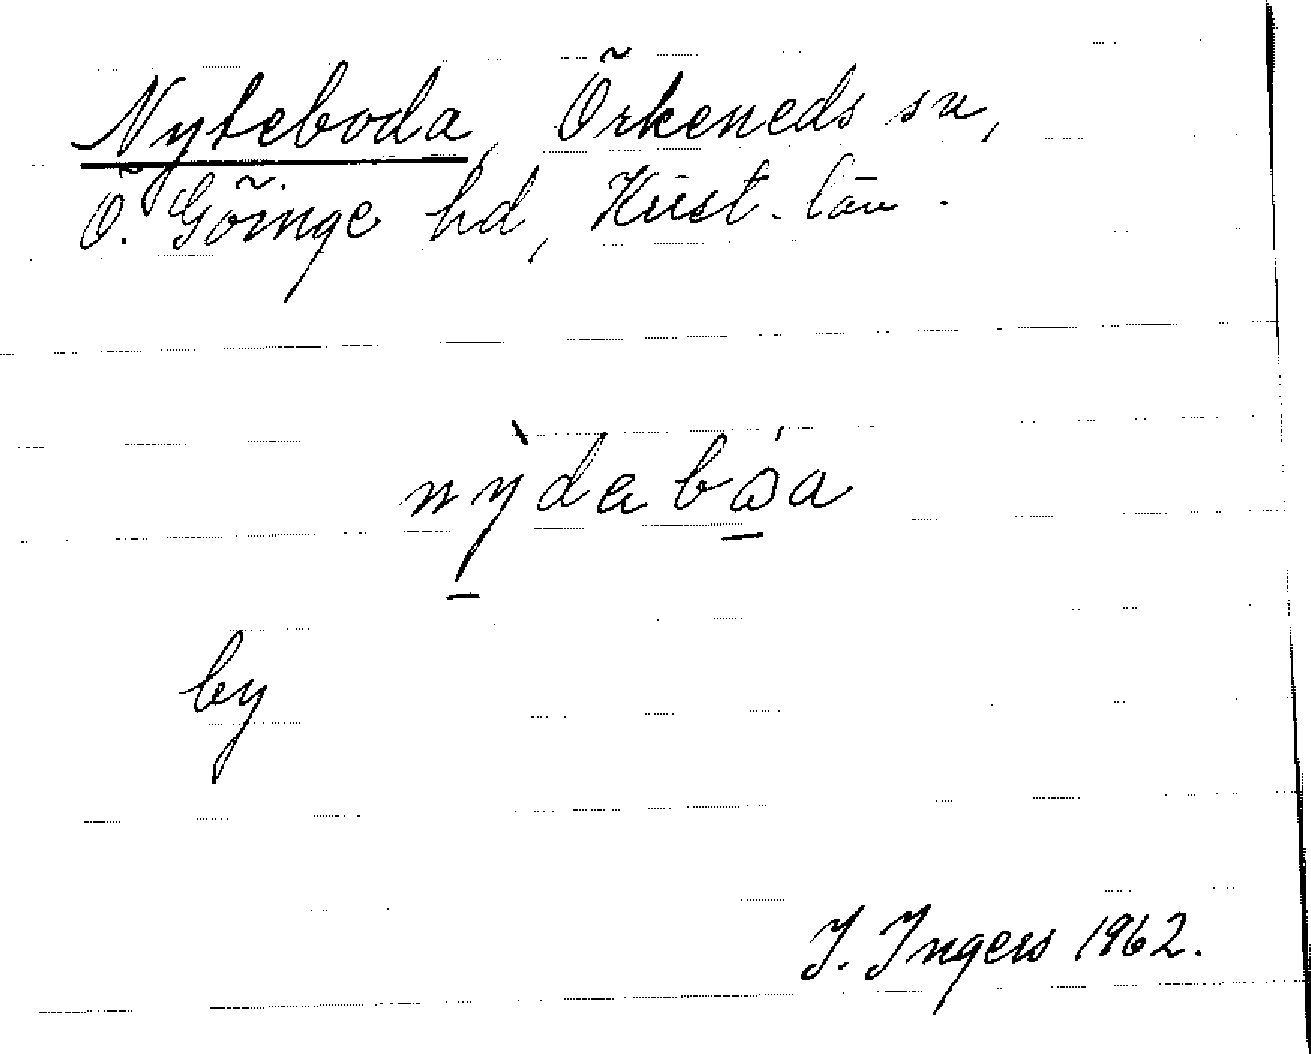 Nyteboda, Örkeneds sn,
Ö. Göinge hd, Krist. län.
by
I. Ingers 1962.